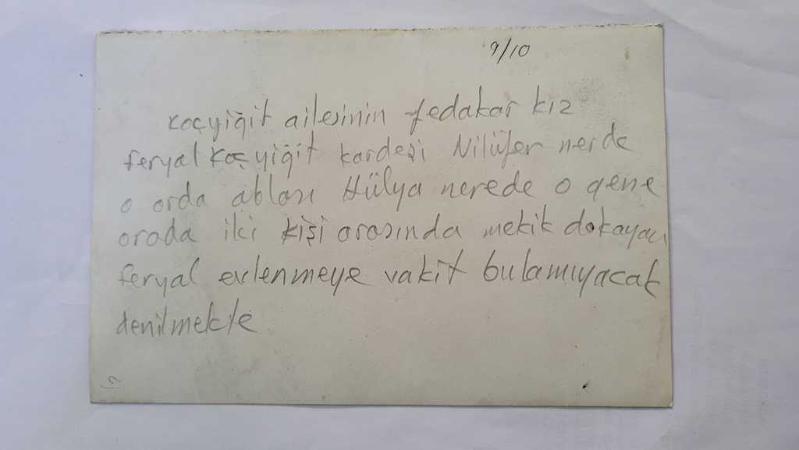 9/10
Koçyiğit ailesinin fedakar kız
feryal Koçyiğit kardeşi Nilüfer nerde
o orda ablası Hülya nerede o gene
orada iki kişi arasında mekik dokayacı
feryal evlenmeye vakit bulamıyacak
denilmekte